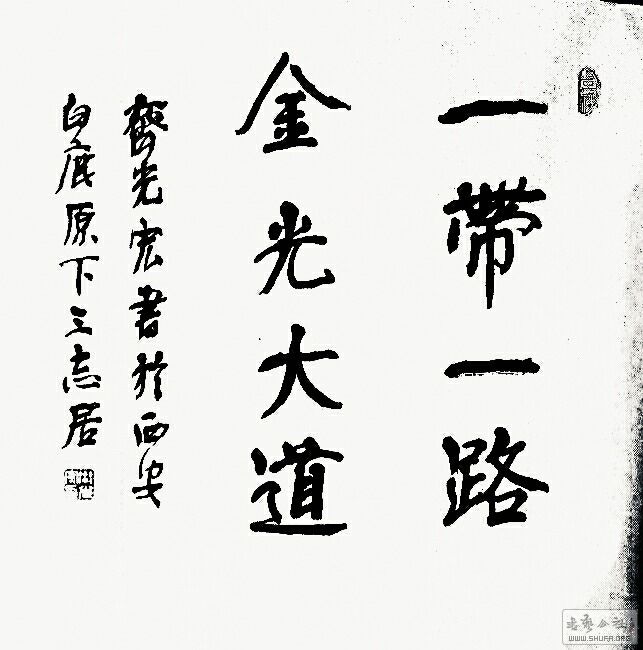 一帶一路
金光大道
齊光宏書於西安
白鹿原下三志居
WWW.SHUFA.ORG